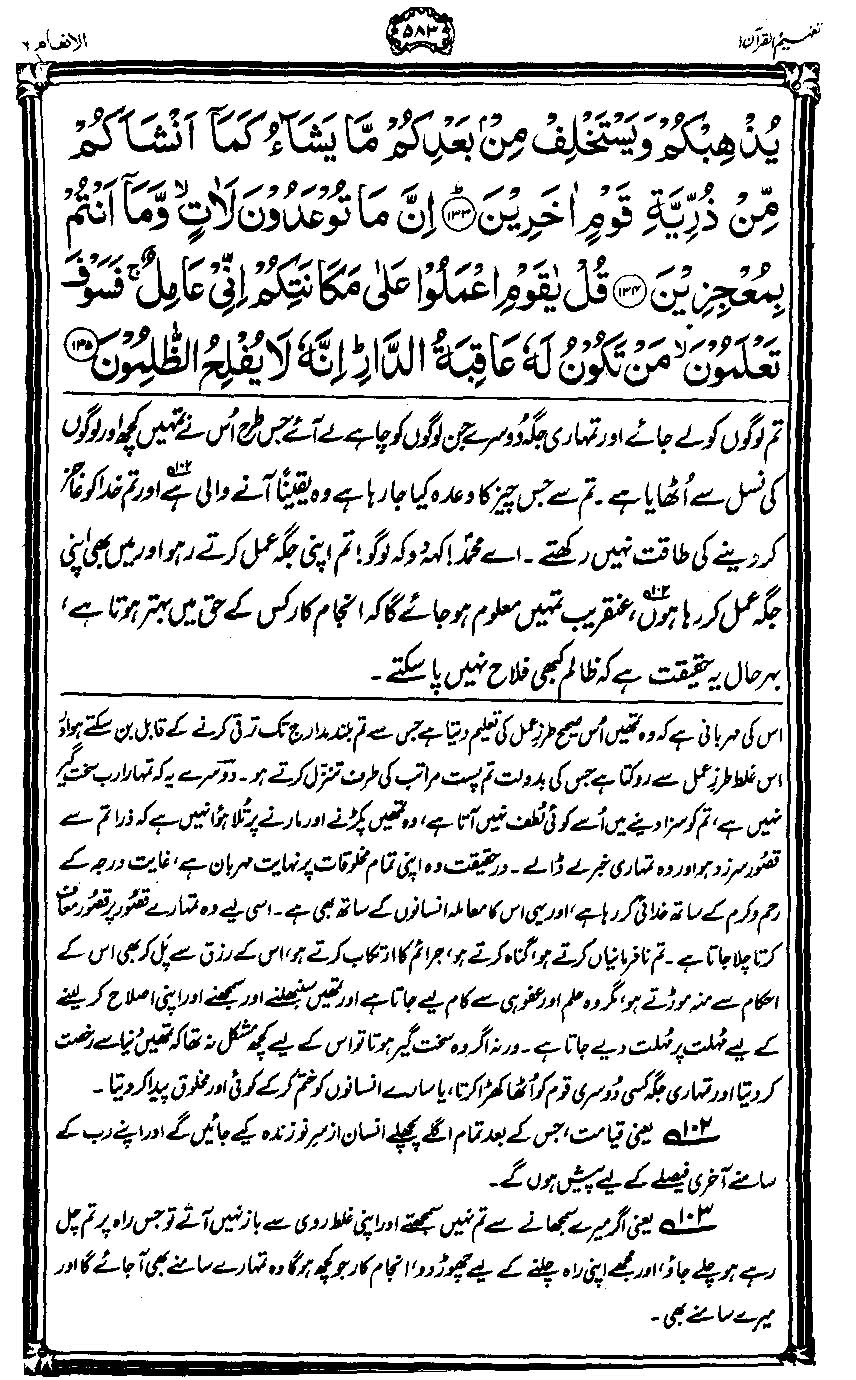 تفہیم القرآن ۱
۵۸۳
الانعام ۶
يُذْهِبْكُمْ وَيَسْتَخْلِفْ مِنْۢ بَعْدِكُمْ مَّا يَشَآءُ كَمَآ اَنْشَاَكُمْ
مِّنْ ذُرِّيَّةِ قَوْمٍ اٰخَرِيْنَ ﴿۱۳۳﴾ اِنَّ مَا تُوْعَدُوْنَ لَاٰتٍ ۙ وَّمَآ اَنْتُمْ
بِمُعْجِزِيْنَ ﴿۱۳۴﴾ قُلْ يٰقَوْمِ اعْمَلُوْا عَلٰى مَكَانَتِكُمْ اِنِّيْ عَامِلٌ ۚ فَسَوْفَ
تَعْلَمُوْنَ ۙ مَنْ تَكُوْنُ لَهٗ عَاقِبَةُ الدَّارِ ؕ اِنَّهٗ لَا يُفْلِحُ الظّٰلِمُوْنَ ﴿۱۳۵﴾
تم لوگوں کو لے جائے اور تمہاری جگہ دُوسرے جن لوگوں کو چاہے لے آئے جس طرح اُس نے تمہیں کچھ اور لوگوں
کی نسل سے اُٹھایا ہے۔ تم سے جس چیز کا وعدہ کیا جا رہا ہے وہ یقیناً آنے والی ہے۱۰۲ اور تم خدا کو عاجز
کر دینے کی طاقت نہیں رکھتے۔ اے محمدؐ! کہہ دُو کہ لوگو! تم اپنی جگہ عمل کرتے رہو اور میں بھی اپنی
جگہ عمل کر رہا ہوں۱۰۳، عنقریب تمہیں معلوم ہو جائے گا کہ انجام کار کس کے حق میں بہتر ہوتا ہے،
بہرحال یہ حقیقت ہے کہ ظالم کبھی فلاح نہیں پا سکتے۔
اس کی مہربانی ہے کہ وہ تمھیں اُس صحیح طرزِ عمل کی تعلیم دیتا ہے جس سے تم بلند مدارج تک ترقی کرنے کے قابل بن سکتے ہو اور
اس غلط طرزِ عمل سے روکتا ہے جس کی بدولت تم پست مراتب کی طرف تنزّل کرتے ہو۔ دوسرے یہ کہ تمہارا رب سخت گیر
نہیں ہے، تم کو سزا دینے میں اُسے کوئی لُطف نہیں آتا ہے، وہ تمھیں پکڑنے اور مارنے پر تُلا ہؤا نہیں ہے کہ ذرا تم سے
قصُور سرزد ہو اور وہ تمہاری خبر لے ڈالے۔ درحقیقت وہ اپنی تمام مخلوقات پر نہایت مہربان ہے، غایت درجہ کے
رحم و کرم کے ساتھ خدائی کر رہا ہے، اور یہی اس کا معاملہ انسانوں کے ساتھ بھی ہے۔ اسی لیے وہ تمہارے قصُور پر قصُور معاف
کرتا چلا جاتا ہے۔ تم نافرمانیاں کرتے ہو، گناہ کرتے ہو، جرائم کا ارتکاب کرتے ہو، اس کے رزق سے پَل کر بھی اس کے
احکام سے منہ موڑتے ہو، مگر وہ حلم اور عفو ہی سے کام لیے جاتا ہے اور تمھیں سنبھلنے اور سمجھنے اور اپنی اصلاح کر لینے
کے لیے مُہلت پر مُہلت دیے جاتا ہے۔ ورنہ اگر وہ سخت گیر ہوتا تو اس کے لیے کچھ مشکل نہ تھا کہ تمھیں دُنیا سے رخصت
کر دیتا اور تمہاری جگہ کسی دُوسری قوم کو اُٹھا کھڑا کرتا، یا سارے انسانوں کو ختم کر کے کوئی اور مخلوق پیدا کر دیتا۔
۱۰۲ یعنی قیامت، جس کے بعد تمام اگلے پچھلے انسان ازسرِنو زندہ کیے جائیں گے اور اپنے رب کے
سامنے آخری فیصلے کے لیے پیش ہوں گے۔
۱۰۳ یعنی اگر میرے سمجھانے سے تم نہیں سمجھتے اور اپنی غلط روی سے باز نہیں آتے تو جس راہ پر تم چل
رہے ہو چلے جاؤ، اور مجھے اپنی راہ چلنے کے لیے چھوڑ دو، انجام کار جو کچھ ہوگا وہ تمہارے سامنے بھی آ جائے گا اور
میرے سامنے بھی۔